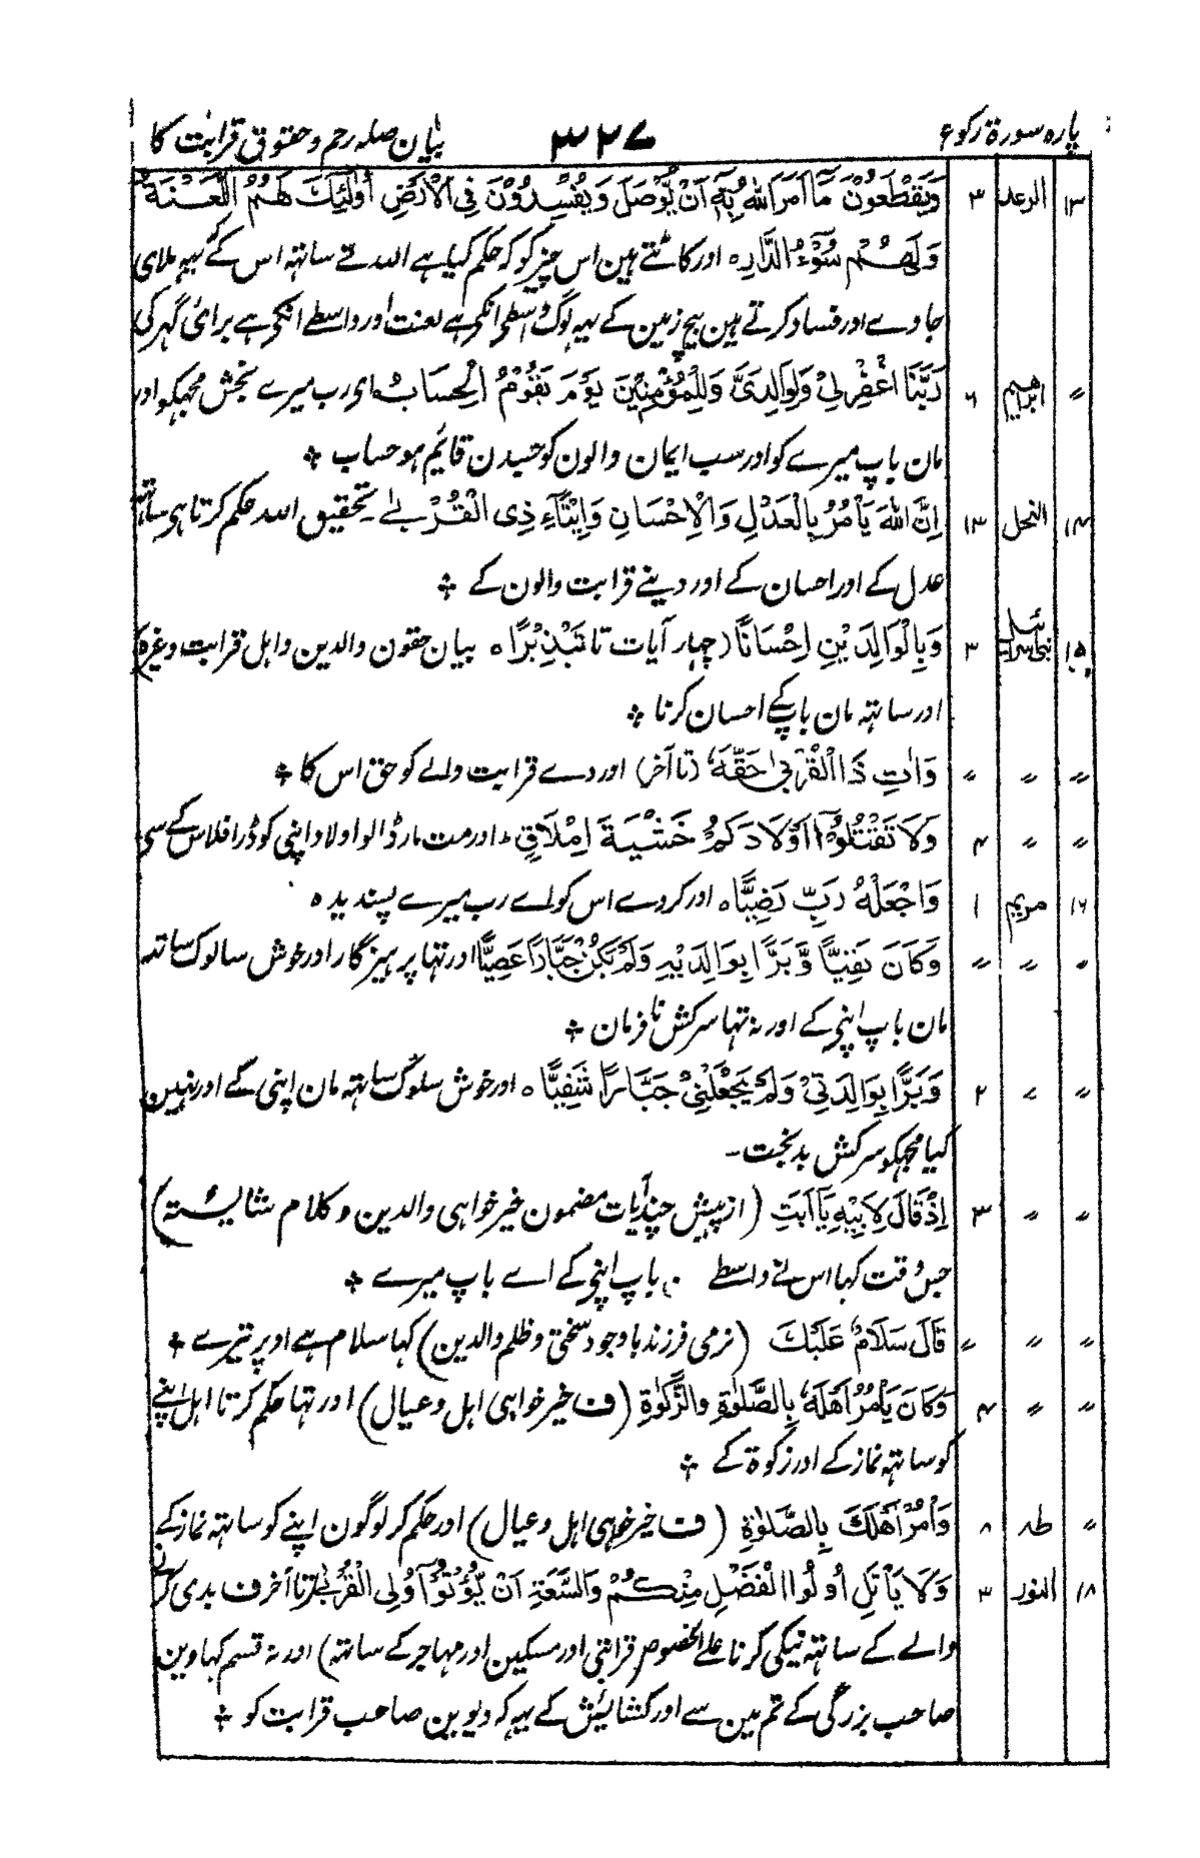 پارہ سورۃ رکوع ۳۲۷ بیان صلہ رحم و حقوق قرابت کا
۱۳ الرعد ۳ وَيَقْطَعُوْنَ مَآ اَمَرَ اللّٰهُ بِهٖٓ اَنْ يُّوْصَلَ وَيُفْسِدُوْنَ فِي الْاَرْضِ اُولٰٓئِكَ لَهُمُ اللَّعْنَةُ
وَلَهُمْ سُوْٓءُ الدَّارِ ہ اور کاٹتے ہین اس چیز کو کہ حکم کیا ہے اللہ نے ساتہہ اس کے یہہ ملای
جاوے اور فساد کرتے ہین بیچ زمین کے یہہ لوگ واسطی انکی ہے لعنت اور واسطے انکی ہے برائی گہر کی
〃 ابراہیم ۶ رَبَّنَا اغْفِرْ لِيْ وَلِوَالِدَيَّ وَلِلْمُؤْمِنِيْنَ يَوْمَ يَقُوْمُ الْحِسَابُ ای رب میرے بخش مجہکو اور
مان باپ میرے کو اور سب ایمان والون کو جسدن قایٔم ہو حساب ۞
۱۴ النحل ۱۳ اِنَّ اللّٰهَ يَأْمُرُ بِالْعَدْلِ وَالْاِحْسَانِ وَاِيْتَآءِ ذِى الْقُرْبٰے ۔ تحقیق اللہ حکم کرتا ہی ساتہہ
عدل کے اور احسان کے اور دینے قرابت والون کے ۞
۱۵ بنی اسرائیل ۳ وَبِالْوَالِدَيْنِ اِحْسَانًا (چہار آیات تا تَبْذِيْرًا ہ بیان حقون والدین و اہل قرابت وغیرہ
اور ساتہہ مان باپکے احسان کرنا ۞
〃 〃 〃 وَاٰتِ ذَا الْقُرْبٰى حَقَّهٗ (تا آخر) اور دے قرابت والے کو حق اس کا ۞
〃 〃 ۴ وَلَا تَقْتُلُوْٓا اَوْلَادَكُمْ خَشْيَةَ اِمْلَاقٍ ۔ اور مت مار ڈالو اولاد اپنی کو ڈر افلاس کے سی
۱۶ مریم ۱ وَاجْعَلْهُ رَبِّ رَضِيًّا ہ اور کر دے اس کو اے رب میرے پسندیدہ ہ
〃 〃 〃 وَكَانَ تَقِيًّا وَّبَرًّا بِوَالِدَيْهِ وَلَمْ يَكُنْ جَبَّارًا عَصِيًّا اور تہا پرہیزگار اور خوش سالوک ساتہہ
مان باپ اپنی کے اور نہ تہا سرکش نافرمان ۞
〃 〃 ۲ وَبَرًّا بِوَالِدَتِيْ وَلَمْ يَجْعَلْنِيْ جَبَّارًا شَقِيًّا ہ اور خوش سلوک ساتہہ مان اپنی کے اور نہین
کیا مجہکو سرکش بدبخت ۔
〃 〃 ۳ اِذْ قَالَ لِاَبِيْهِ يٰٓاَبَتِ (از پیش چند آیات مضمون خیر خواہی والدین و کلام شایٔستہ)
جس وقت کہا اس نے واسطے باپ اپنی کے اے باپ میرے ۞
〃 〃 〃 قَالَ سَلَامٌ عَلَيْكَ (نرمی فرزند باوجود سختی و ظلم والدین) کہا سلام ہے اوپر تیرے ۞
〃 〃 ۴ وَكَانَ يَأْمُرُ اَهْلَهٗ بِالصَّلٰوةِ وَالزَّكٰوةِ (ف خیر خواہی اہل و عیال) اور تہا حکم کرتا اہل اپنے
کو ساتہہ نماز کے اور زکوۃ کے ۞
〃 طہ ۸ وَأْمُرْ اَهْلَكَ بِالصَّلٰوةِ (ف خیر خواہی اہل و عیال) اور حکم کر لوگون اپنے کو ساتہہ نماز کے
۱۸ النور ۳ وَلَا يَأْتَلِ اُولُوا الْفَضْلِ مِنْكُمْ وَالسَّعَةِ اَنْ يُّؤْتُوْٓا اُولِى الْقُرْبٰى (تا آخر ف بدی کرنے
والے کے ساتہہ نیکی کرنا علے الخصوص قرابتی اور مسکین اور مہاجر کے ساتہہ) اور نہ قسم کہاوین
صاحب بزرگی کے تم مین سے اور کشایٔش کے یہہ کہ دیوین صاحب قرابت کو ۞